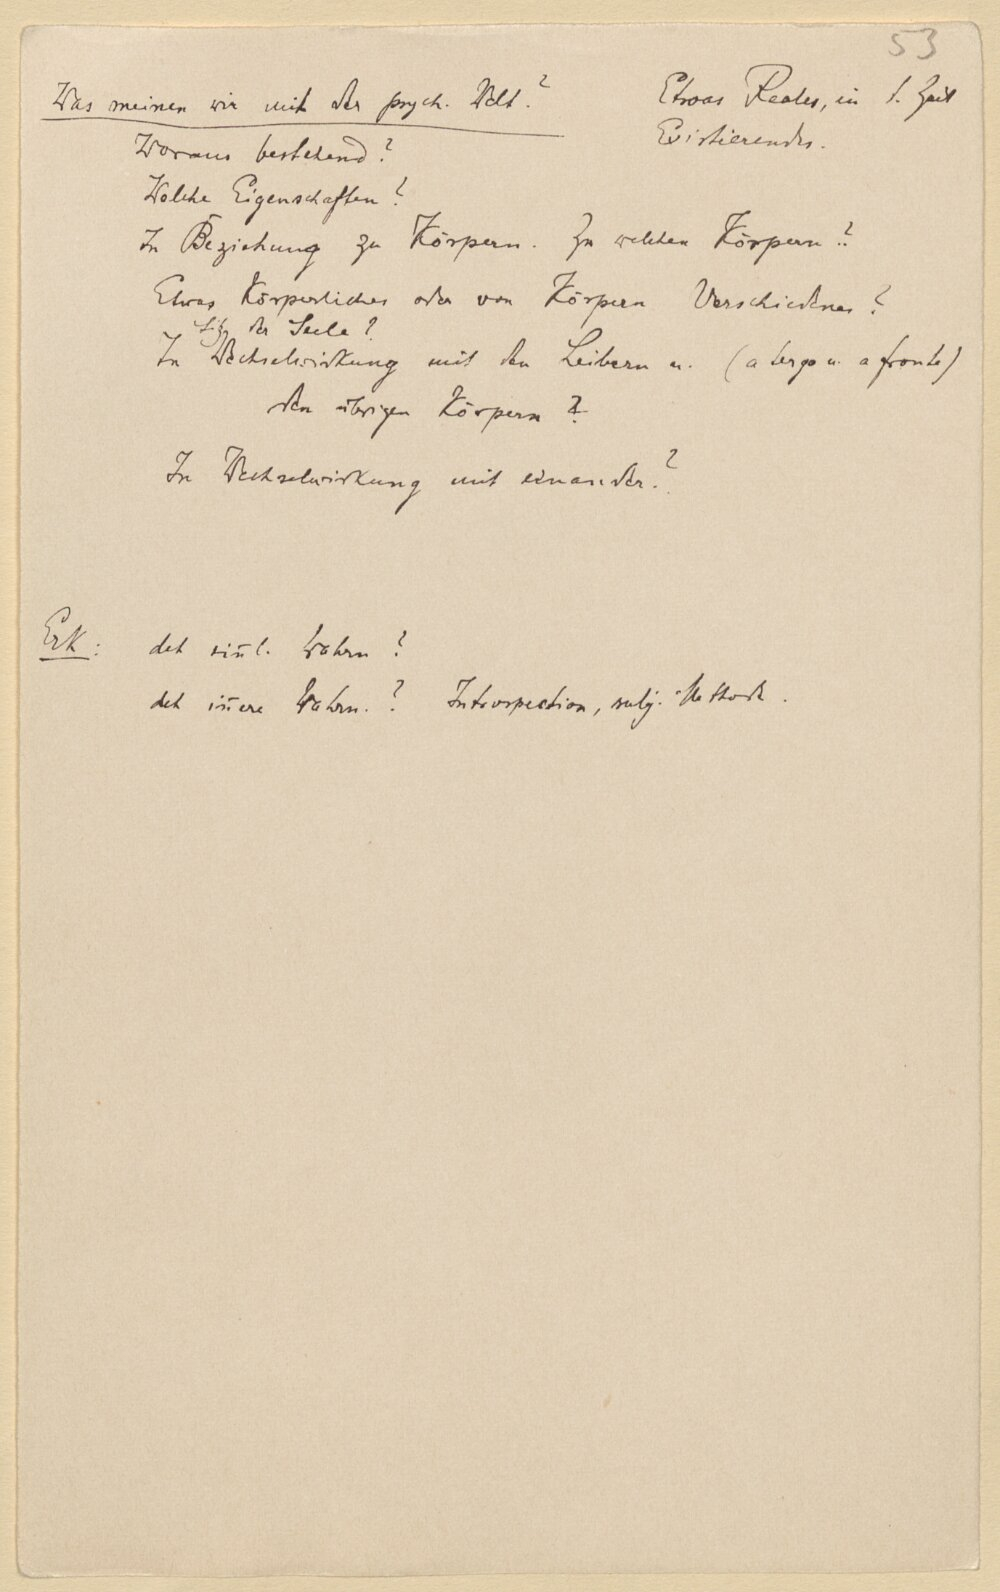 53
Was meinen wir mit der psych. Welt?
Etwas Reales, in d. Zeit
Existierendes.
Woraus bestehend?
Welche Eigenschaften?
In Beziehung zu Körpern. Zu welchen Körpern?
Etwas Körperliches oder von Körpern Verschiedenes?
Sitz der Seele?
In Wechselwirkung mit den Leibern u. (a tergo u. a fronte)
den übrigen Körpern?
In Wechselwirkung mit einander?
Erk: dch sinnl. Wahrn?
dch innere Wahrn.? Introspection, subj. Methode.